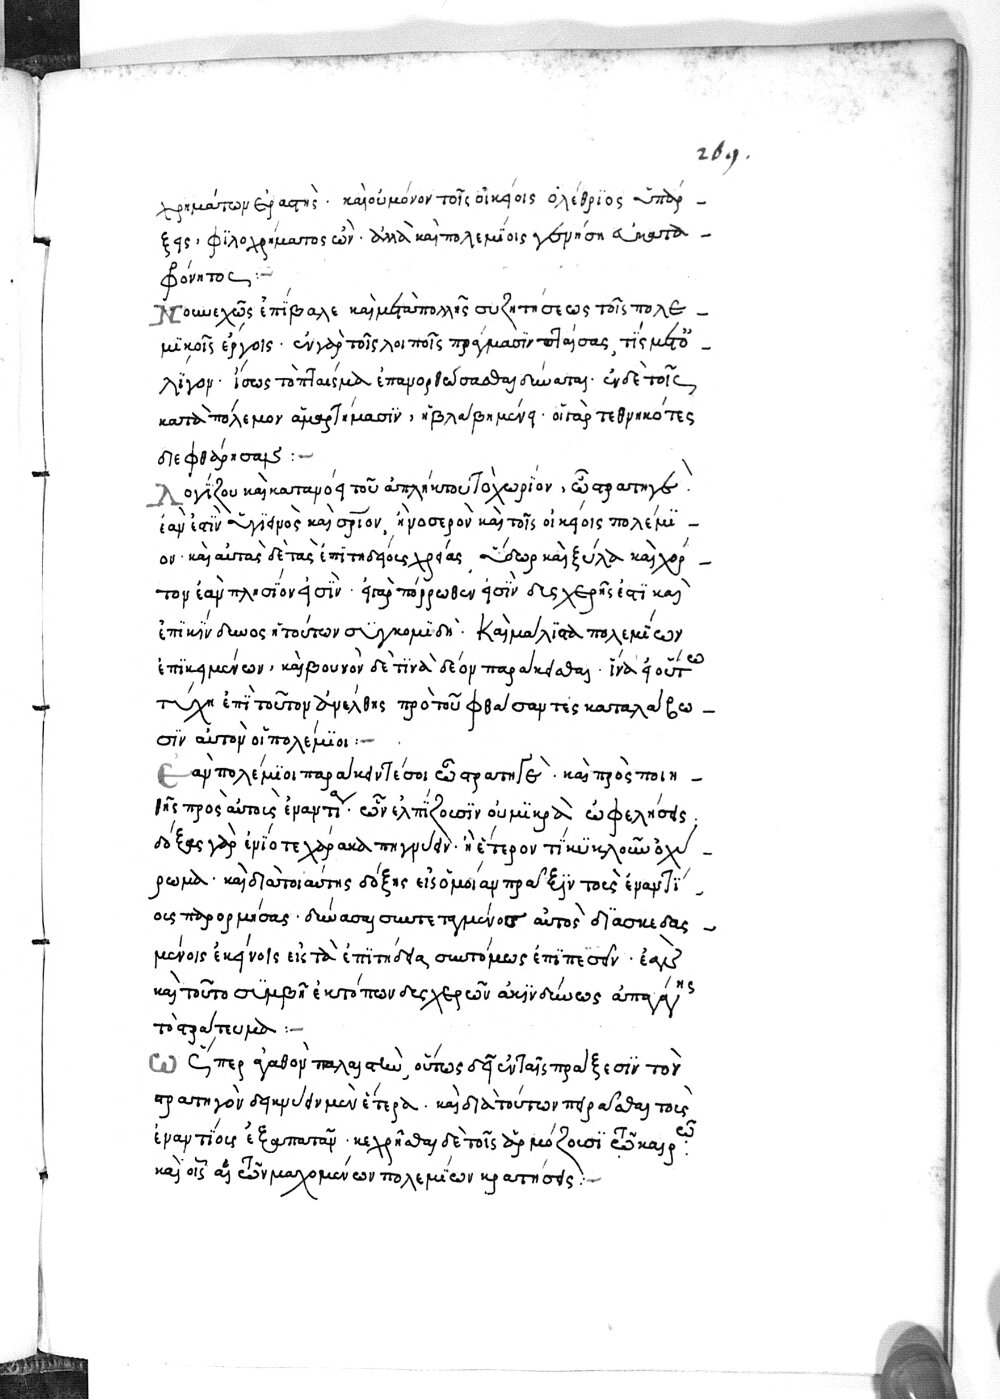 269.
χρημάτων ἐραστής · καὶ οὐ μόνον τοῖς οἰκείοις ὀλέθριος ὑπάρ-
ξεις, φιλοχρήματος ὤν · ἀλλὰ καὶ πολεμίοις γενήση εὐκατα-
φρόνητος :-
Νουνεχῶς ἐπίβαλε καὶ μετὰ πολλῆς συζητήσεως τοῖς πολε-
μικοῖς ἔργοις · ἐν γὰρ τοῖς λοιποῖς πράγμασιν πταίσας τίς μετ'
ὀλίγον · ἴσως τὸ πταίσμα ἐπανορθώσασθαι δύναται · ἐν δὲ τοῖς
κατὰ πόλεμον ἁμαρτήμασιν, ἡ βλάβη μένει · οἱ γὰρ τεθνηκότες
διεφθάρησαν :-
Λογίζου καὶ κατανόει τοῦ ἀπλήκτου τὸ χωρίον, ὦ στρατηγέ ·
ἐὰν ἐστὶν ὑγιεινὸς καὶ σῷον, ἢ νοσερὸν καὶ τοῖς οἰκείοις πολέμι-
ον · καὶ αὐτὰς δὲ τὰς ἐπιτηδείοις χρείας, ὕδωρ καὶ ξύλα καὶ χόρ-
τον ἐὰν πλησίον εἰσίν · εἰ γὰρ πόρρωθεν εἰσὶν δυσχερής ἐστι καὶ
ἐπικίνδυνος ἡ τούτων συγκομιδή · Καὶ μάλιστα πολεμίων
ἐπικειμένων, καὶ βουνὸν δὲ τινὰ δέον παρακεῖσθαι · ἵνα εἰ οὕτω
τύχη ἐπὶ τοῦτον ἀνέλθης πρὸ τοῦ φθάσαντες καταλάβω-
σιν αὐτὸν οἱ πολέμιοι :-
Ἐὰν πολέμιοι παράκεινταί σοι ὦ στρατηγέ · καὶ προσποιη-
θῆς πρὸς αὐτοὺς ἐναντία · ὧν ἐλπίζουσιν οὐ μικρὰ ὠφελήσεις ·
δόξεις γὰρ ἐνίοτε χάρακα πηγνύειν · ἢ ἕτερον τὶ κύκλωθεν ὀχύ-
ρωμα · καὶ διὰ τοιαύτης δόξης εἰς ὁμοίαν πράξιν τοὺς ἐναντί-
ους παρορμήσας · δύνασαι συντεταγμένος αὐτὸς διασκεδασ-
μένοις ἐκείνοις εἰς τὰ ἐπιτήδεια συντόμως ἐπιπεσεῖν · ἐὰν
καὶ τοῦτο συμβῆ ἐκ τόπων δυσχερῶν ἀκινδύνως ἀπαγάγης
τὸ στράτευμα :-
Ὥσπερ ἀγαθὸν παλαιστὴν, οὕτως δεῖ ἐν ταῖς πράξεσιν τὸν
στρατηγὸν δεικνύειν μὲν ἕτερα · καὶ διὰ τούτων πειρᾶσθαι τοὺς
ἐναντίους ἐξαπατᾶν · κεχρῆσθαι δὲ τοῖς ἁρμόζουσι τῷ καιρῷ ·
καὶ οἷς ἂν τῶν μαχομένων πολεμίων κρατήσεις :-